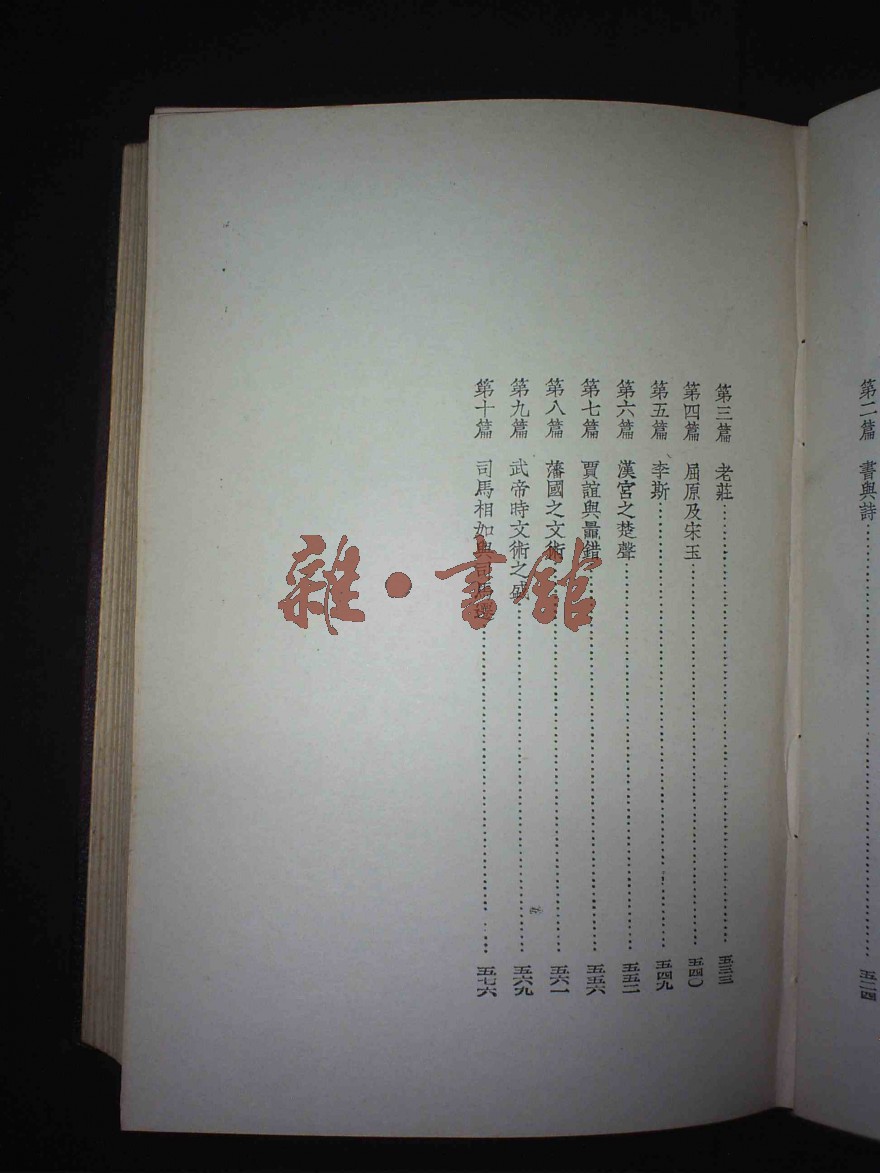 第二篇 書與詩……五二四
第三篇 老莊……五三三
第四篇 屈原及宋玉……五四〇
第五篇 李斯……五四九
第六篇 漢宮之楚聲……五五二
第七篇 賈誼與鼂錯……五五六
第八篇 藩國之文術……五六一
第九篇 武帝時文術之盛……五六九
第十篇 司馬相如與司馬遷……五七六
雜·書館